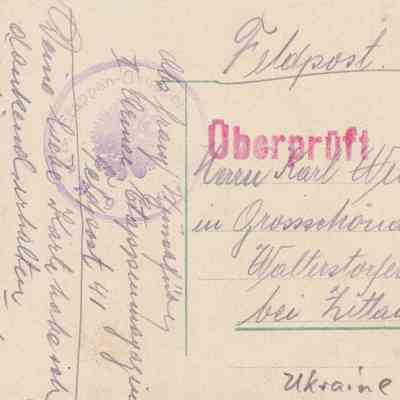 Feldpost.
Überprüft
Herrn Karl We
in Grossschöna
Walterstorfer
bei Zittau
Ukraine
Abs. Franz
k. Etappenmagazin
Feldpost 41
Deine liebe Karte habe ich
dankend erhalten